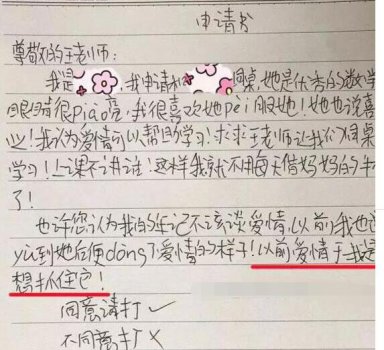 申请书
尊敬的王老师:
我是 ,我申请和 同桌,她是优秀的数学
眼睛很piào亮,我很喜欢她pèi服她!她也说喜
业!我认为爱情可以帮助学习,求求王老师让我们同桌
学习!上课不讲话!这样我就不用每天借妈妈的手
了!
也许您认为我的年记不该谈爱情,以前我也这
yù到她后便dǒng了爱情的样子!以前爱情于我是
想抓住它!
同意请打✓
不同意打×